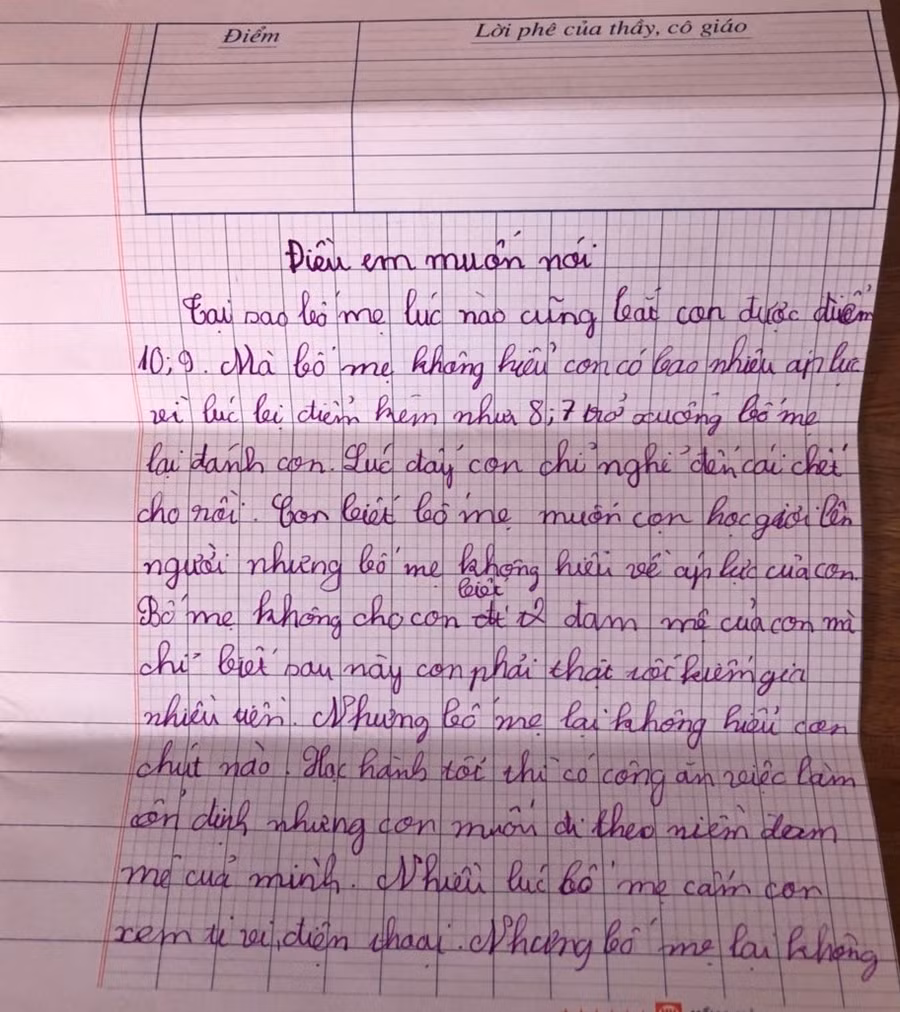 Điểm
Lời phê của thầy, cô giáo
Điều em muốn nói
Tại sao bố mẹ lúc nào cũng bắt con được điểm
10; 9. Mà bố mẹ không hiểu con có bao nhiêu áp lực
vì lúc bị điểm kém như 8; 7 trở xuống bố mẹ
lại đánh con. Lúc đấy con chỉ nghĩ đến cái chết
cho rồi. Con biết bố mẹ muốn con học giỏi lên
người nhưng bố mẹ không hiểu về áp lực của con.
biết
Bố mẹ không cho con đam mê của con mà
chỉ biết sau này con phải thật tốt kiếm gia
nhiều tiền. Nhưng bố mẹ lại không hiểu con
chút nào. Học hành tốt thì có công ăn việc làm
ổn định nhưng con muốn đi theo niềm đam
mê của mình. Nhiều lúc bố mẹ cấm con
xem ti vi, điện thoại. Nhưng bố mẹ lại không